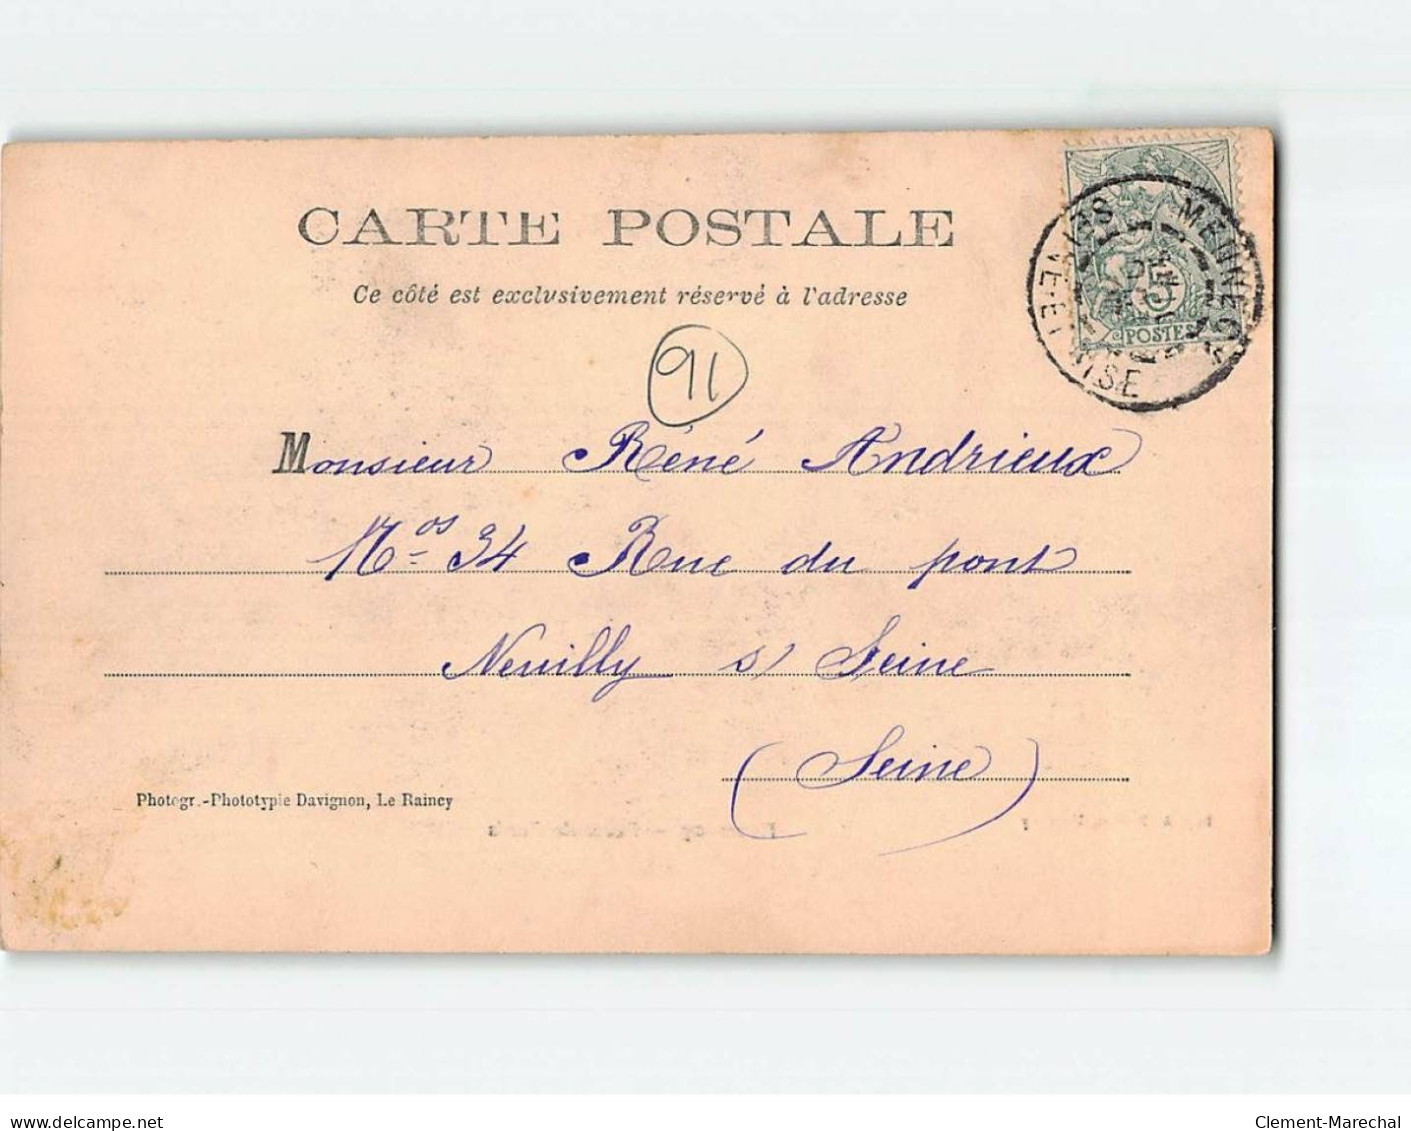 CARTE POSTALE
Ce côté est exclusivement réservé à l'adresse
MENNECY
SNE ET OISE
POSTES
91
Monsieur Réné Andrieux
Nos 34 Rue du pont
Neuilly s/ Seine
(Seine)
Photogr.-Phototypie Davignon, Le Raincy
delcampe.net
Clement-Marechal